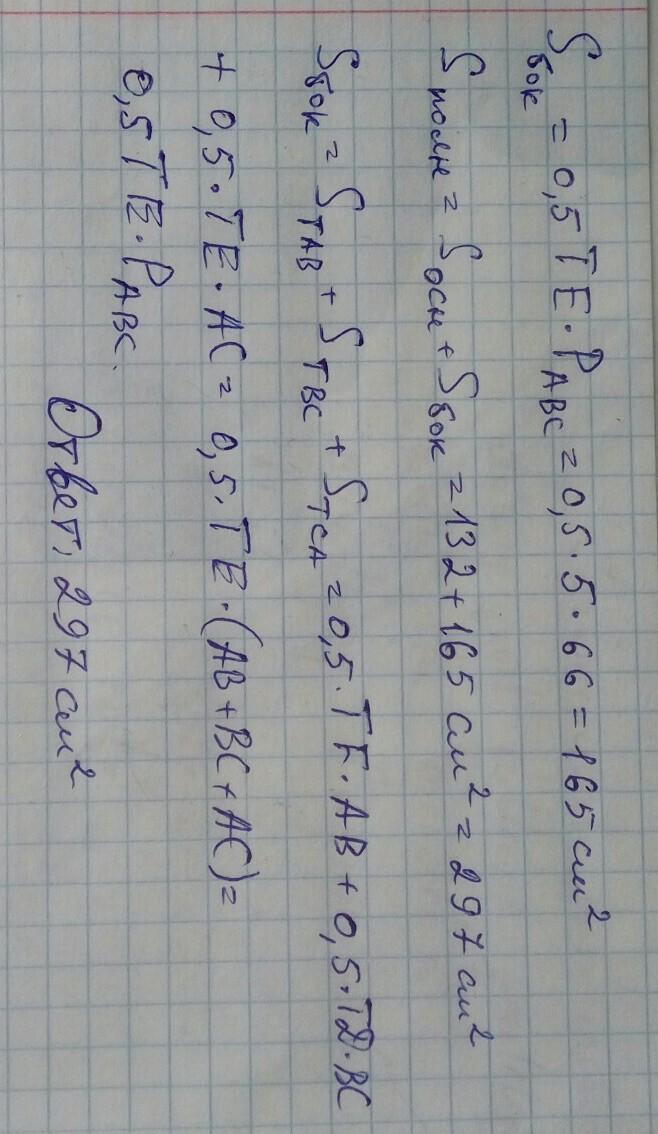 Sбок = 0,5 TE · PABC = 0,5 · 5 · 66 = 165 см²
Sполн = Sосн + Sбок = 132 + 165 см² = 297 см²
Sбок = STAB + STBC + STCA = 0,5 · TF · AB + 0,5 · TD · BC
+ 0,5 · TE · AC = 0,5 · TE · (AB + BC + AC) =
0,5 TE · PABC.
Ответ, 297 см²